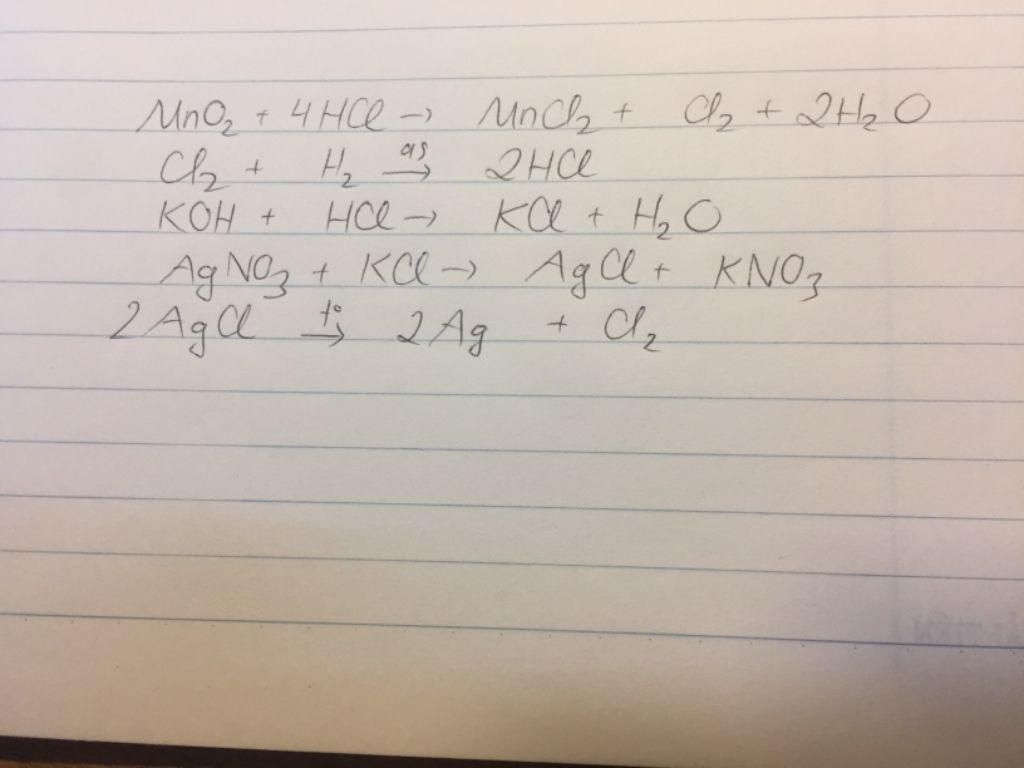 MnO₂ + 4HCl → MnCl₂ + Cl₂ + 2H₂O
Cl₂ + H₂ →(as) 2HCl
KOH + HCl → KCl + H₂O
AgNO₃ + KCl → AgCl + KNO₃
2AgCl →(t°) 2Ag + Cl₂